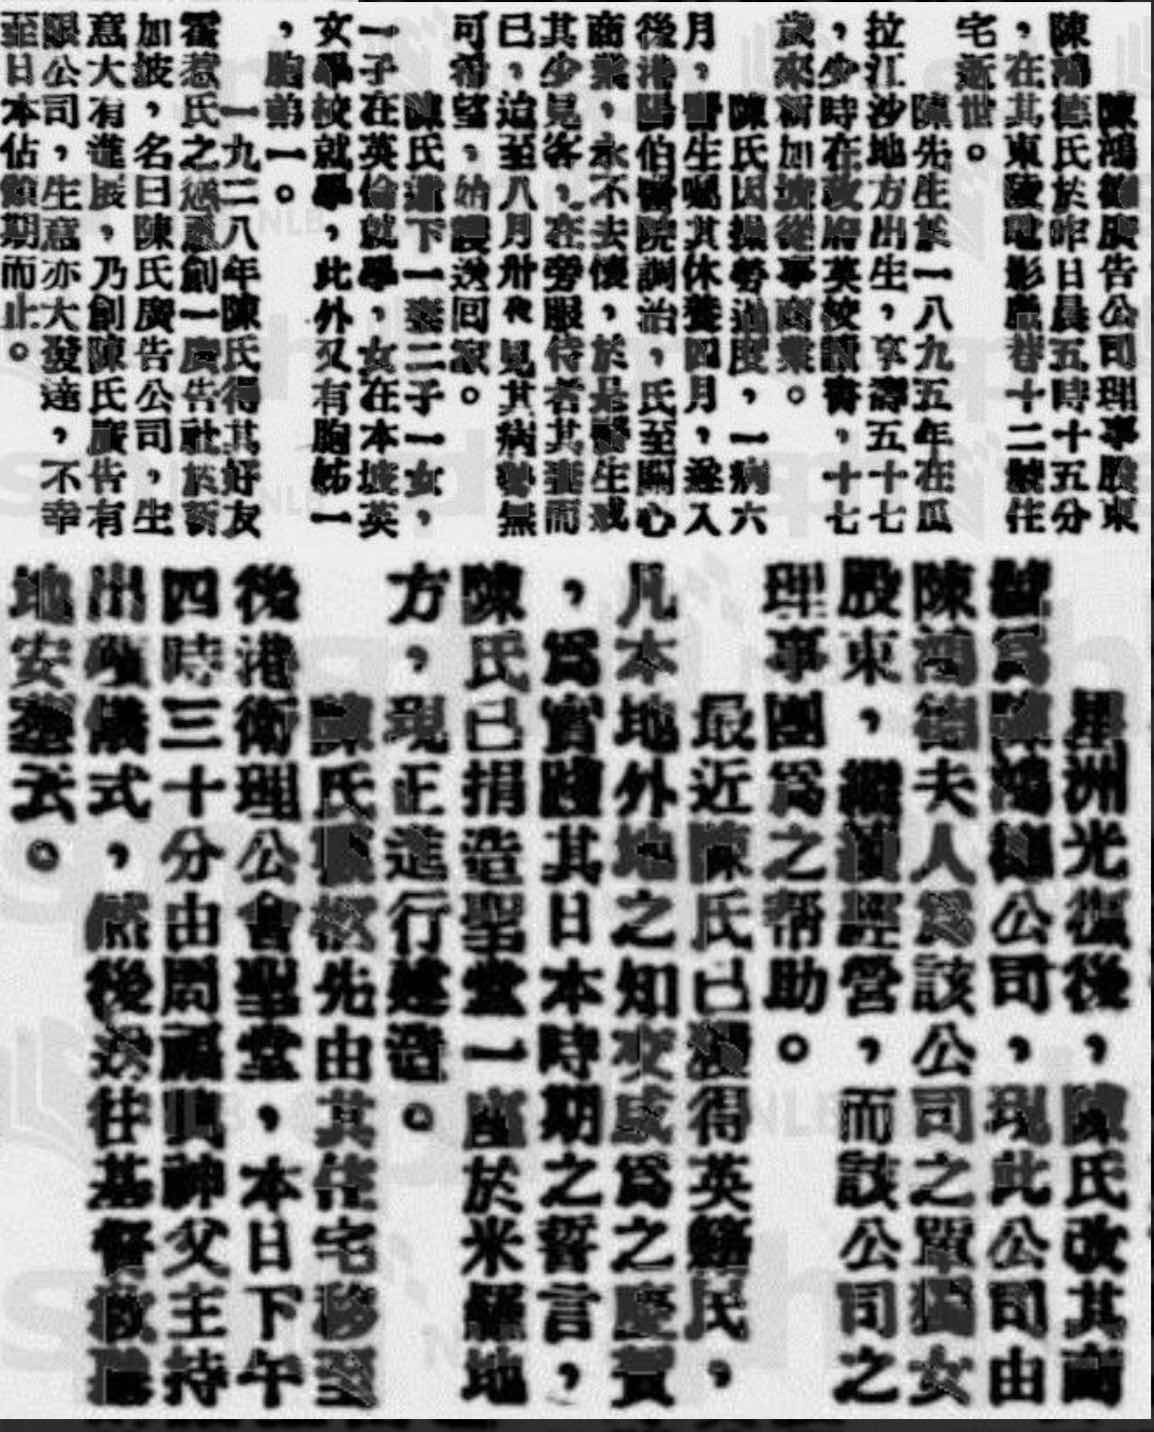 陳鴻德廣告公司理事股東
陳鴻德氏於昨日晨五時十五分
，在其東陵電影戲巷十二號住
宅逝世。
陳先生於一八九五年在瓜
拉江沙地方出生，享壽五十七
，少時在政府英校讀書，十七
歲來新加坡從事商業。
陳氏因操勞過度，一病六
月，醫生囑其休養四月，遂入
後港陽伯醫院調治，氏至關心
商業，永不去懷，於是醫生或
其少見客，在旁服侍者其妻而
已，迨至八月卅夜見其病勢無
可希望，始護送回家。
陳氏遺下一妻二子一女，
一子在英倫就學，女在本坡英
女學校就學，此外又有胞姊一
，胞弟一。
一九二八年陳氏得其好友
霍惹氏之慫恿創一廣告社於新
加坡，名曰陳氏廣告公司，生
意大有進展，乃創陳氏廣告有
限公司，生意亦大發達，不幸
至日本佔領期而止。
星洲光復後，陳氏改其商
號爲陳鴻德公司，現此公司由
陳鴻德夫人爲該公司之單獨女
股東，繼續經營，而該公司之
理事團爲之帮助。
最近陳氏已獲得英籍民，
凡本地外地之知交咸爲之慶賀
，爲實踐其日本時期之誓言，
陳氏已捐造聖堂一座於米羅地
方，現正進行建造。
陳氏靈柩先由其住宅移至
後港衛理公會聖堂，本日下午
四時三十分由周福興神父主持
出殯儀式，然後送往基督教墓
地安葬云。